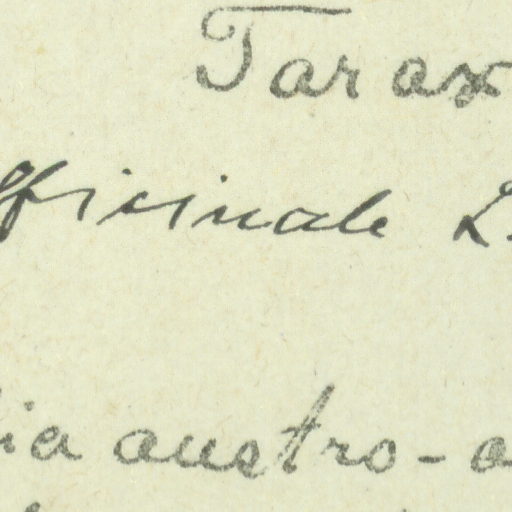 Tarax
fficinale L.
ia austro-o